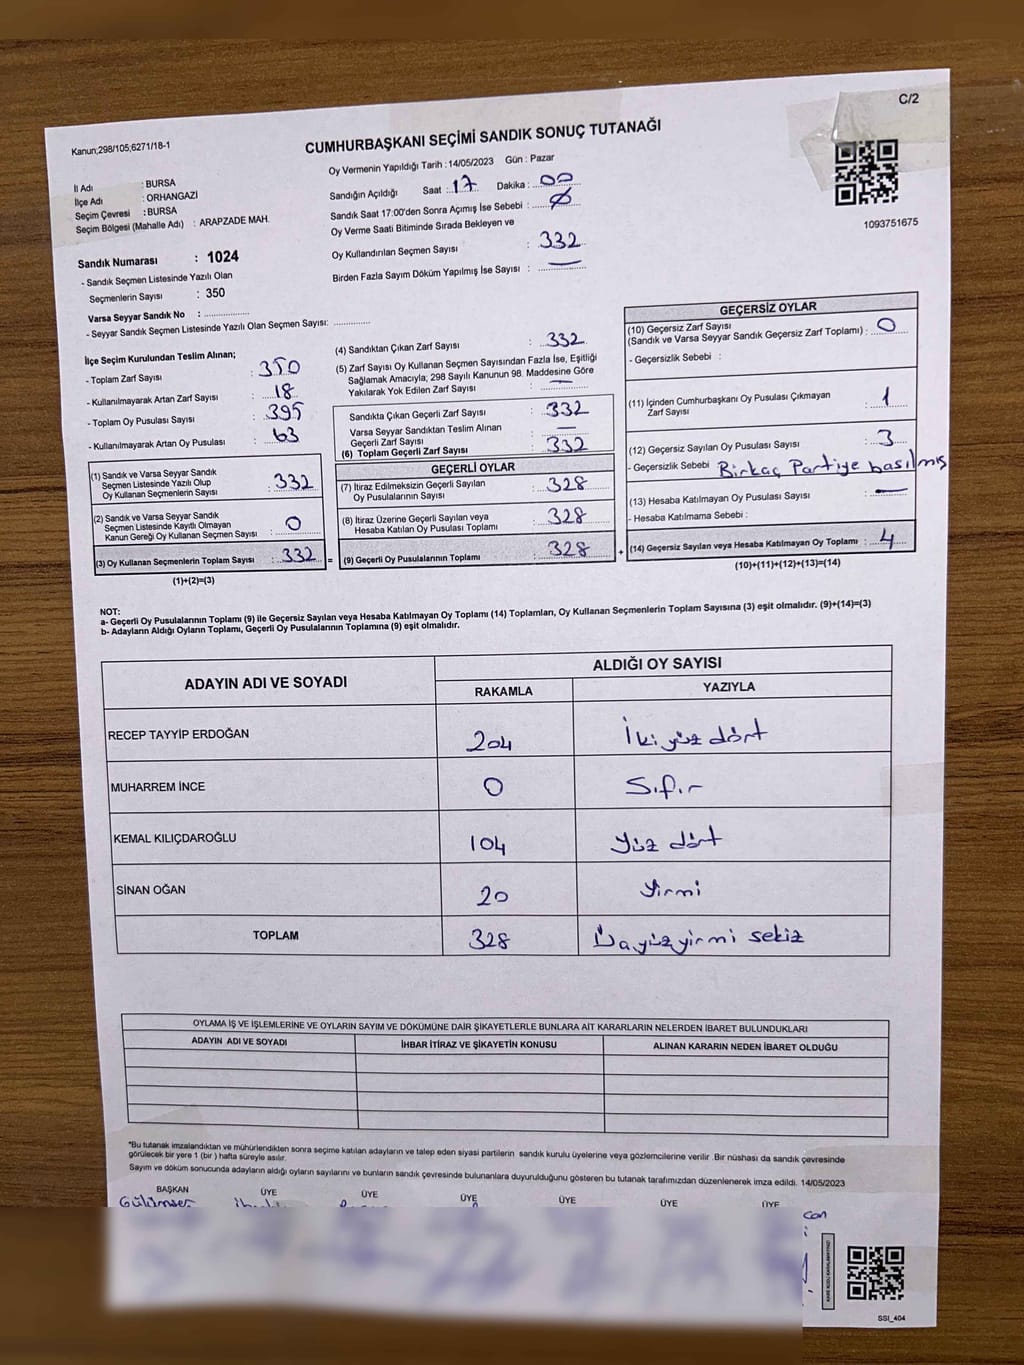 C/2
Kanun;298/105;6271/18-1
CUMHURBAŞKANI SEÇİMİ SANDIK SONUÇ TUTANAĞI
Oy Vermenin Yapıldığı Tarih : 14/05/2023 Gün : Pazar
İl Adı : BURSA
İlçe Adı : ORHANGAZİ
Seçim Çevresi : BURSA
Seçim Bölgesi (Mahalle Adı) : ARAPZADE MAH.
Sandığın Açıldığı Saat : 17 Dakika : 00
Sandık Saat 17:00'den Sonra Açmış İse Sebebi :
Oy Verme Saati Bitiminde Sırada Bekleyen ve
Oy Kullandırılan Seçmen Sayısı : 332
Birden Fazla Sayım Döküm Yapılmış İse Sayısı : —
1093751675
Sandık Numarası : 1024
- Sandık Seçmen Listesinde Yazılı Olan
Seçmenlerin Sayısı : 350
Varsa Seyyar Sandık No :
- Seyyar Sandık Seçmen Listesinde Yazılı Olan Seçmen Sayısı:
İlçe Seçim Kurulundan Teslim Alınan;
- Toplam Zarf Sayısı : 350
- Kullanılmayarak Artan Zarf Sayısı : 18
- Toplam Oy Pusulası Sayısı : 395
- Kullanılmayarak Artan Oy Pusulası : 63
(1) Sandık ve Varsa Seyyar Sandık
Seçmen Listesinde Yazılı Olup
Oy Kullanan Seçmenlerin Sayısı : 332
(2) Sandık ve Varsa Seyyar Sandık
Seçmen Listesinde Kayıtlı Olmayan
Kanun Gereği Oy Kullanan Seçmen Sayısı : 0
(3) Oy Kullanan Seçmenlerin Toplam Sayısı : 332 =
(1)+(2)=(3)
(4) Sandıktan Çıkan Zarf Sayısı : 332
(5) Zarf Sayısı Oy Kullanan Seçmen Sayısından Fazla İse, Eşitliği
Sağlamak Amacıyla; 298 Sayılı Kanunun 98. Maddesine Göre
Yakılarak Yok Edilen Zarf Sayısı : —
Sandıkta Çıkan Geçerli Zarf Sayısı : 332
Varsa Seyyar Sandıktan Teslim Alınan
Geçerli Zarf Sayısı : —
(6) Toplam Geçerli Zarf Sayısı : 332
GEÇERLİ OYLAR
(7) İtiraz Edilmeksizin Geçerli Sayılan
Oy Pusulalarının Sayısı : 328
(8) İtiraz Üzerine Geçerli Sayılan veya
Hesaba Katılan Oy Pusulası Toplamı : 328
(9) Geçerli Oy Pusulalarının Toplamı : 328 +
GEÇERSİZ OYLAR
(10) Geçersiz Zarf Sayısı
(Sandık ve Varsa Seyyar Sandık Geçersiz Zarf Toplamı) : 0
- Geçersizlik Sebebi :
(11) İçinden Cumhurbaşkanı Oy Pusulası Çıkmayan
Zarf Sayısı : 1
(12) Geçersiz Sayılan Oy Pusulası Sayısı : 3
- Geçersizlik Sebebi Birkaç Partiye basılmış
(13) Hesaba Katılmayan Oy Pusulası Sayısı : —
- Hesaba Katılmama Sebebi :
(14) Geçersiz Sayılan veya Hesaba Katılmayan Oy Toplamı : 4
(10)+(11)+(12)+(13)=(14)
NOT:
a- Geçerli Oy Pusulalarının Toplamı (9) ile Geçersiz Sayılan veya Hesaba Katılmayan Oy Toplamı (14) Toplamları, Oy Kullanan Seçmenlerin Toplam Sayısına (3) eşit olmalıdır. (9)+(14)=(3)
b- Adayların Aldığı Oyların Toplamı, Geçerli Oy Pusulalarının Toplamına (9) eşit olmalıdır.
ADAYIN ADI VE SOYADI
ALDIĞI OY SAYISI
RAKAMLA YAZIYLA
RECEP TAYYİP ERDOĞAN 204 İkiyüz dört
MUHARREM İNCE 0 Sıfır
KEMAL KILIÇDAROĞLU 104 Yüz dört
SİNAN OĞAN 20 Yirmi
TOPLAM 328 Üçyüzyirmi sekiz
OYLAMA İŞ VE İŞLEMLERİNE VE OYLARIN SAYIM VE DÖKÜMÜNE DAİR ŞİKAYETLERLE BUNLARA AİT KARARLARIN NELERDEN İBARET BULUNDUKLARI
ADAYIN ADI VE SOYADI İHBAR İTİRAZ VE ŞİKAYETİN KONUSU ALINAN KARARIN NEDEN İBARET OLDUĞU
*Bu tutanak imzalandıktan ve mühürlendikten sonra seçime katılan adayların ve talep eden siyasi partilerin sandık kurulu üyelerine veya gözlemcilerine verilir. Bir nüshası da sandık çevresinde
görülecek bir yere 1 (bir ) hafta süreyle asılır.
Sayım ve döküm sonucunda adayların aldığı oyların sayılarını ve bunların sandık çevresinde bulunanlara duyurulduğunu gösteren bu tutanak tarafımızdan düzenlenerek imza edildi. 14/05/2023
BAŞKAN ÜYE ÜYE ÜYE ÜYE ÜYE ÜYE
Gülümser
can
SSI_404